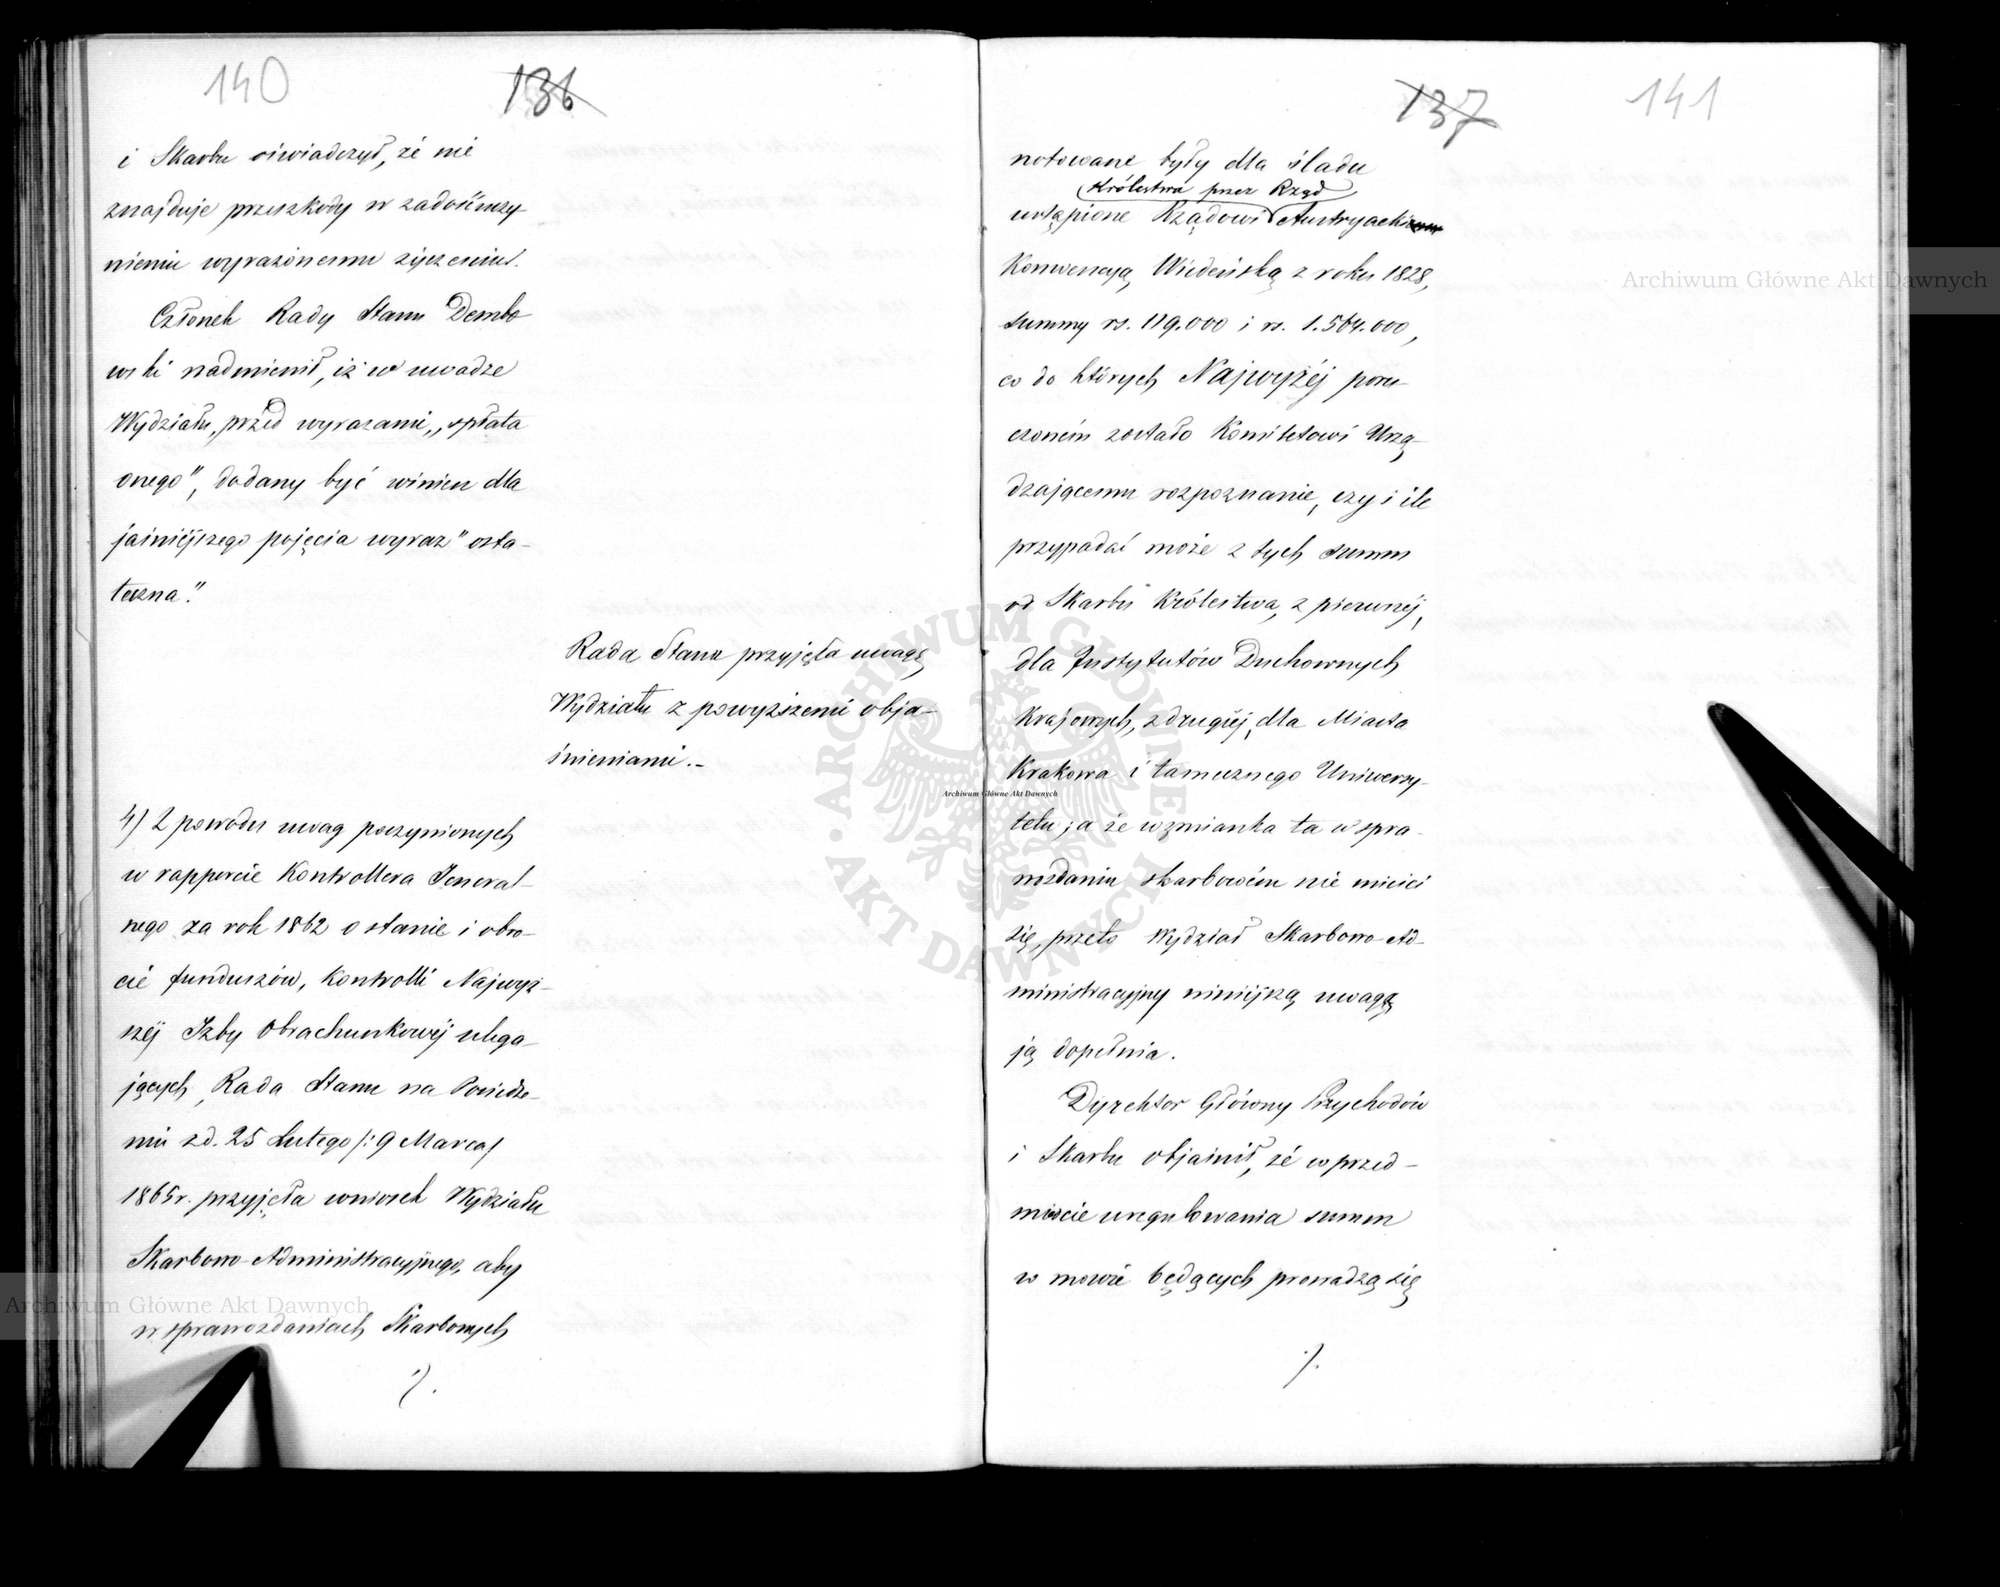 140
136
i Skarbu oświadczył, że nie
znajduje przeszkody w zadośćuczy-
nieniu wyrażonemu życzeniu.
Członek Rady Stanu Dembo
wski nadmienił, iż w uwadze
Wydziału, przed wyrazami „spłata
onego", dodany być winien dla
jaśniéjszego pojęcia wyraz "osta-
teczna."
Rada Stanu przyjęła uwagę
Wydziału z powyższemi obja-
śnieniami.-
4) Z powodu uwag poczynionych
w rapporcie Kontrollera Jeneral-
nego za rok 1862 o stanie i obro-
cie funduszów, Kontrolli Najwyż-
széj Izby Obrachunkowéj ulega-
jących, Rada Stanu na Posiedze-
niu z d. 25 Lutego /: 9 Marca/
1865 r. przyjęła wniosek Wydziału
Skarbowo-Administracyjnego, aby
w sprawozdaniach Skarbowych
·/.
137
141
notowane były dla śladu
Królestwa przez Rząd
ustąpione Rządowi Austryacki
Konwencją Wiedeńską z roku 1828,
summy rs. 119.000 i rs. 1.564.000,
co do których Najwyżéj poru-
czoném zostało Komitetowi Urzą-
dzającemu rozpoznanie, czy i ile
przypadać może z tych summ
od Skarbu Królestwa, z pierwszéj,
dla Instytutów Duchownych
Krajowych, z drugiéj, dla Miasta
Krakowa i tamecznego Uniwersy-
tetu; a że wzmianka ta w spra-
wozdaniu skarbowém nie mieści
się, przeto Wydział Skarbowo-Ad-
ministracyjny niniéjszą uwagą
ją dopełnia.
Dyrektor Główny Przychodów
i Skarbu objaśnił, że w przed-
miocie uregulowania summ
w mowie będących prowadzą się
·/.
Archiwum Główne Akt Dawnych
Archiwum Główne Akt Dawnych
Archiwum Główne Akt Dawnych
ARCHIWUM GŁÓWNE
AKT DAWNYCH